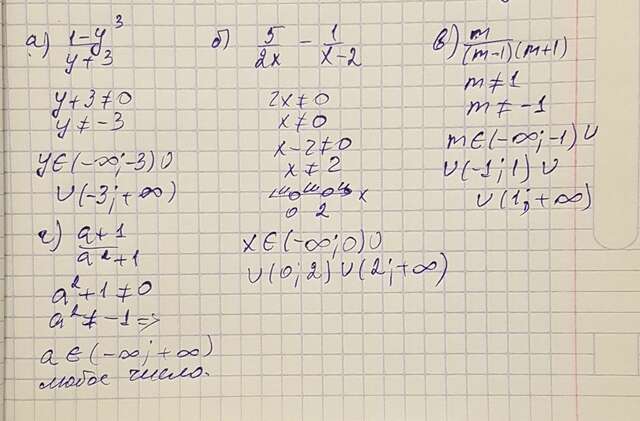 а) (1-y³)/(y+3)
y+3≠0
y≠-3
y∈(-∞;-3)∪
∪(-3;+∞)
б) 5/(2x) - 1/(x-2)
2x≠0
x≠0
x-2≠0
x≠2
x
0 2
x∈(-∞;0)∪
∪(0;2)∪(2;+∞)
в) m/((m-1)(m+1))
m≠1
m≠-1
m∈(-∞;-1)∪
∪(-1;1)∪
∪(1;+∞)
г) (a+1)/(a²+1)
a²+1≠0
a²≠-1=>
a∈(-∞;+∞)
любое число.